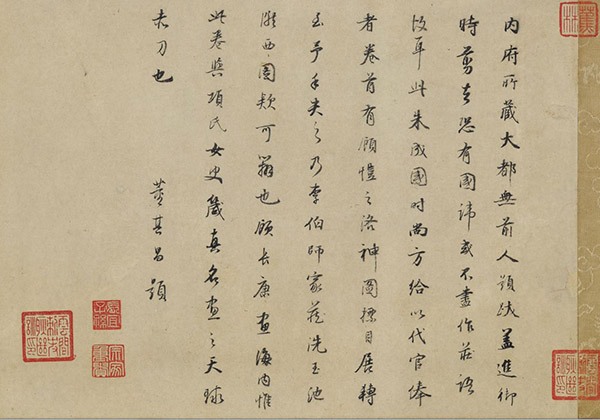 內府所藏大都無前人題跋蓋進御
時剪去恐有國諱或不盡作莊語
故耳此朱成國時尚方給以代官俸
者卷前有顧愷之洛神圖標目展轉
至予手之乃李伯師家藏洗玉池
西圖款可翫也顧長康畫海內惟
此卷與項氏女史箴真名畫之天球
赤刀也
董其昌題